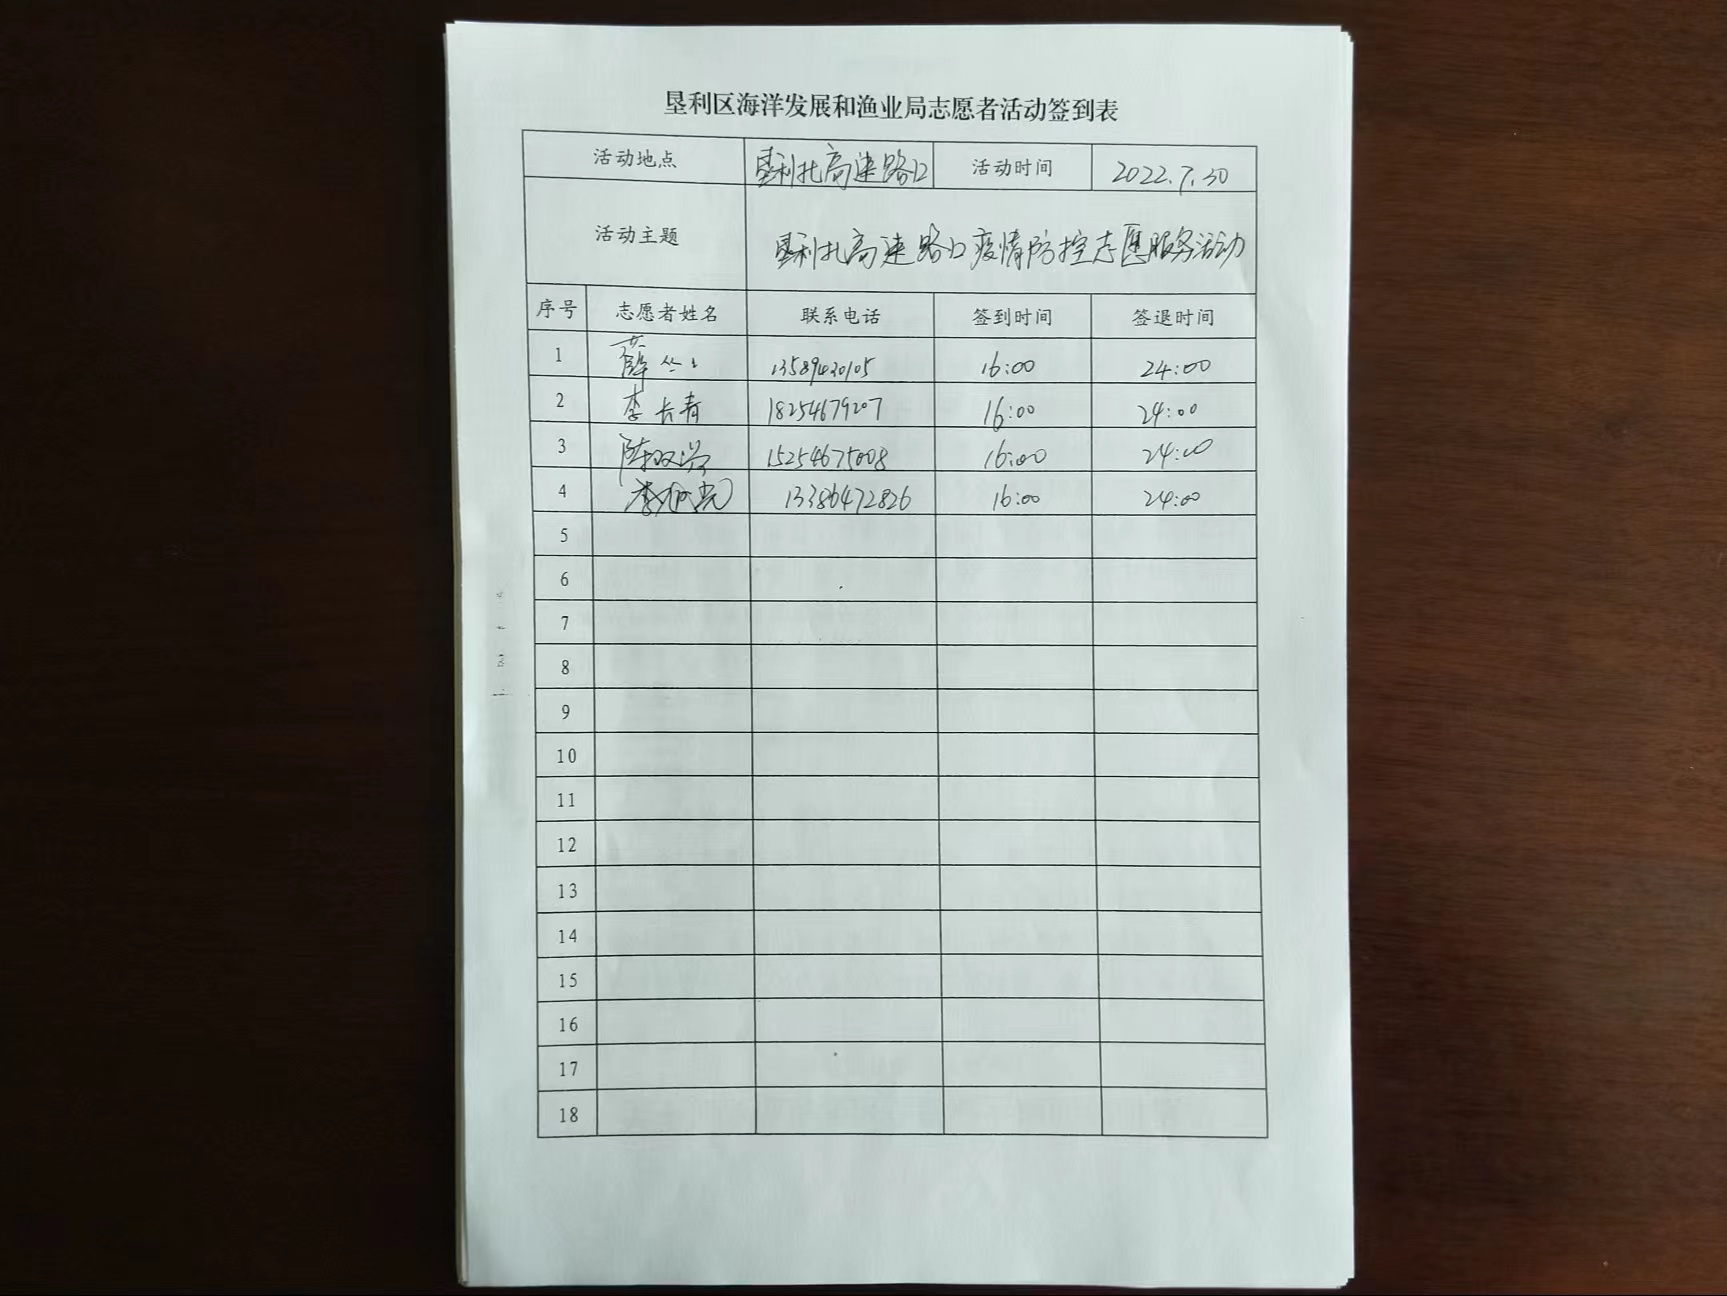 垦利区海洋发展和渔业局志愿者活动签到表
活动地点 垦利北高速路口 活动时间 2022.7.30
活动主题 垦利北高速路口疫情防控志愿服务活动
序号 志愿者姓名 联系电话 签到时间 签退时间
1 薛 13589420105 16:00 24:00
2 李长青 18254679207 16:00 24:00
3 陈双 15254675008 16:00 24:00
4 李 13386472826 16:00 24:00
5
6
7
8
9
10
11
12
13
14
15
16
17
18